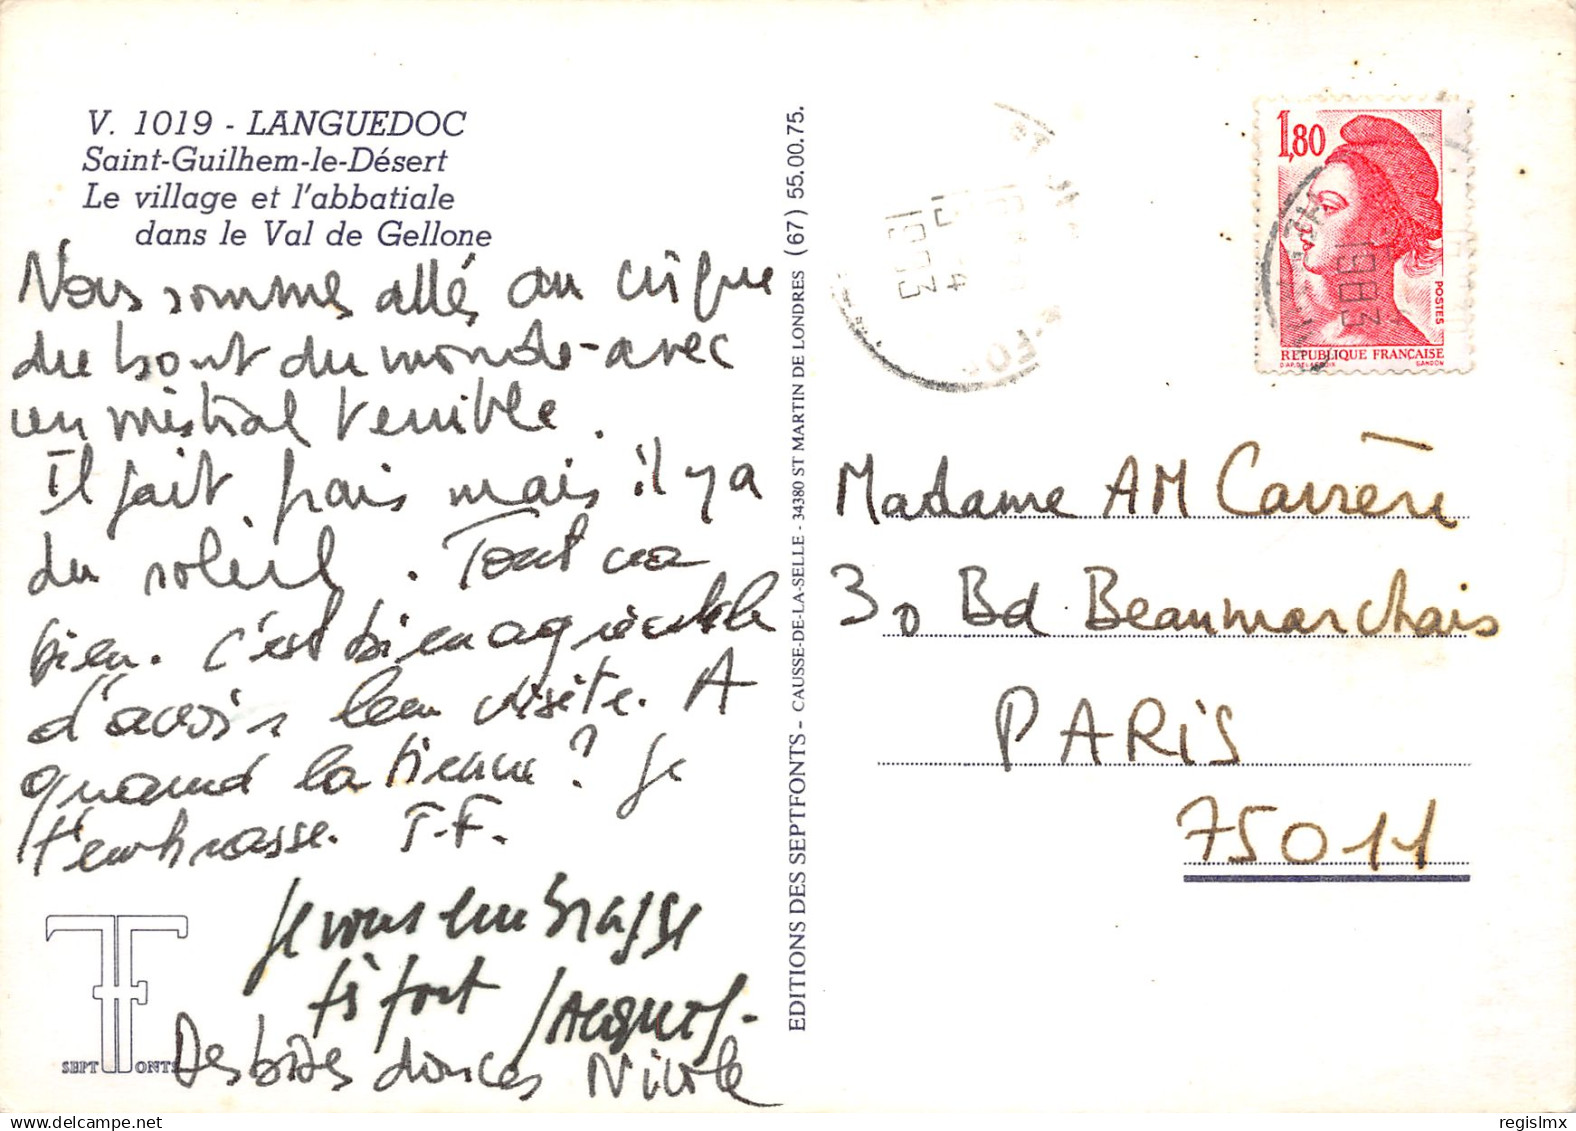 V. 1019 - LANGUEDOC
Saint-Guilhem-le-Désert
Le village et l'abbatiale
dans le Val de Gellone
Nous somme allé au cirque
du bout du monde-avec
un mistral terrible.
Il fait frais mais il y a
du soleil. Tout va
bien. c'est bien agréable
d'avoir leur visite. A
quand la tienne? Je
t'embrasse. T.F.
Je vous embrasse
fort Jacques.
Des bises douces Nicole
SEPT FONTS
EDITIONS DES SEPTFONTS - CAUSSE-DE-LA-SELLE - 34380 ST MARTIN DE LONDRES (67) 55.00.75.
4
1983
1,80
1983
POSTES
REPUBLIQUE FRANÇAISE
D'AP. DELACROIX GANDON
Madame AM Carrère
30 Bd Beaumarchais
PARIS
75011
regislmx